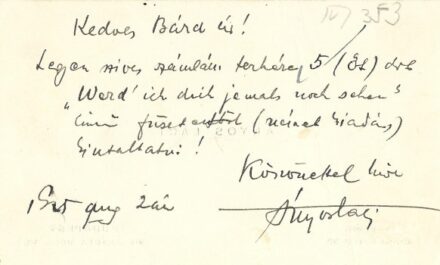 IV/353
Kedves Bárd úr!
Legyen szives számlám terhére 5 (Öt) drb
„Werd' ich dich jemals noch sehen"
című füzetet (német kiadás)
kiutaltatni!
Köszönettel híve
1925 aug 2án